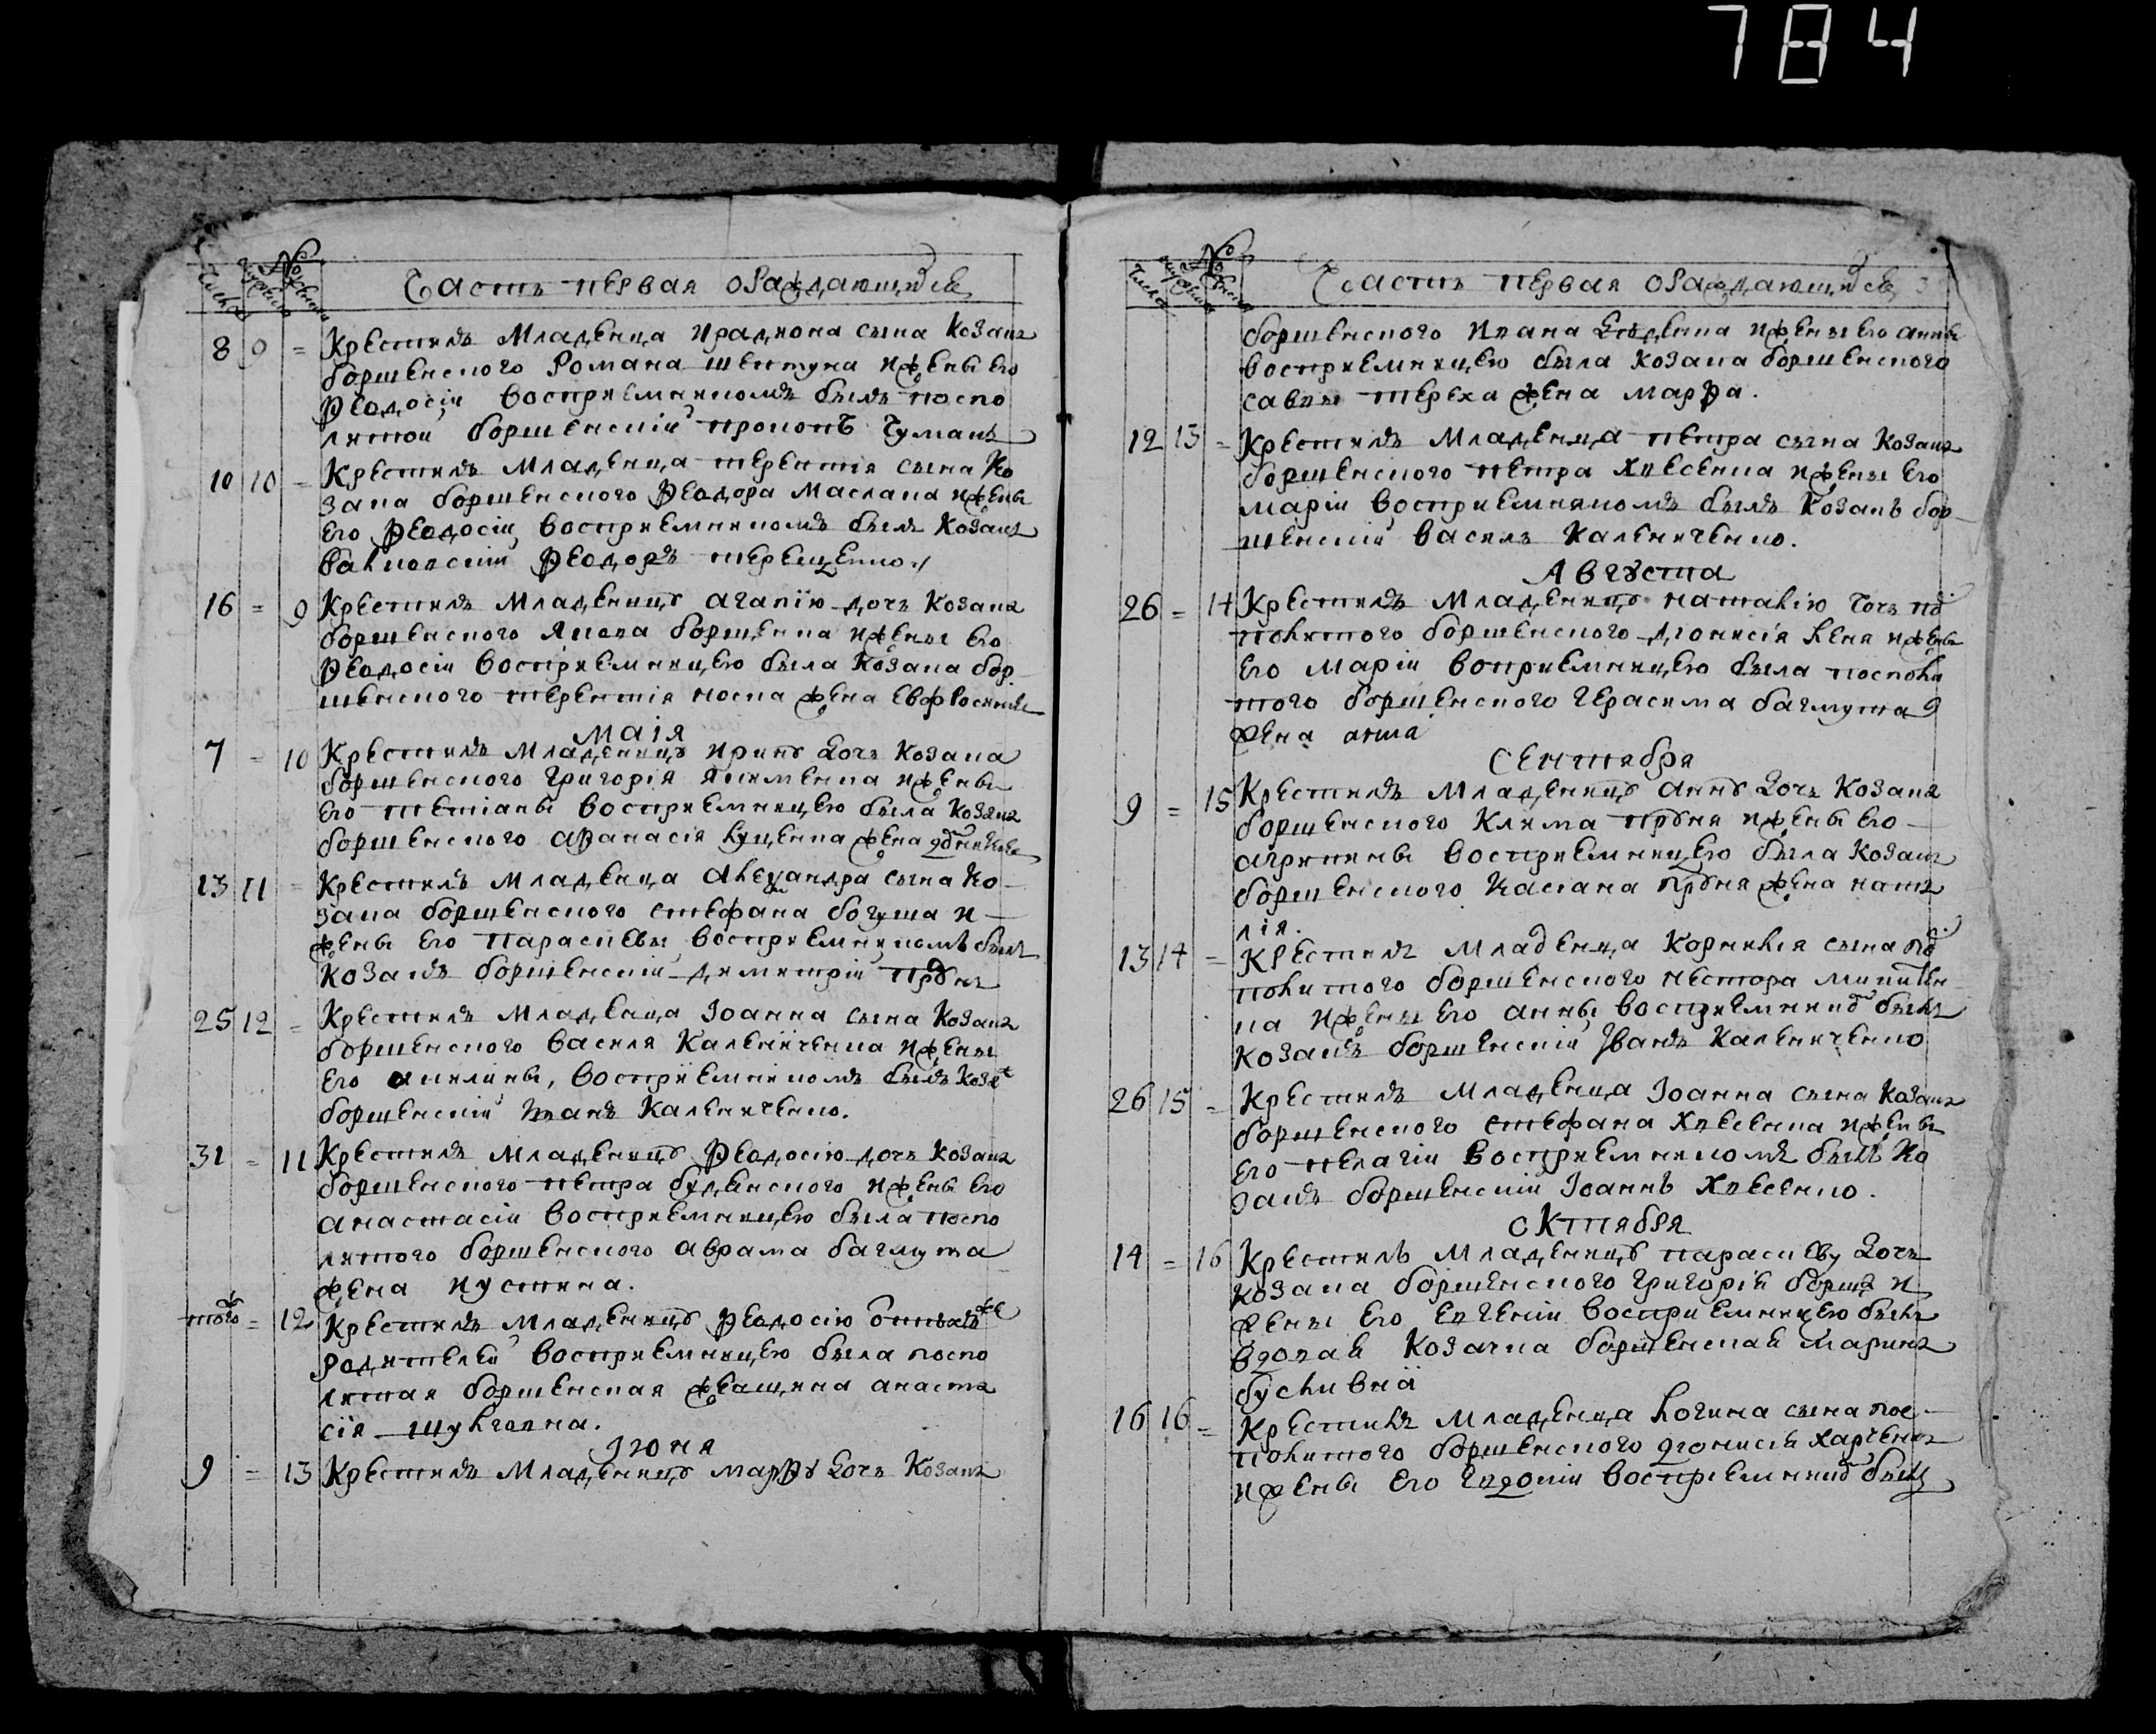 784
Числа мужеска № женска
Часть первая ораждающихся
8 9 = Крестилъ младенца Ирадиона сына козака
борщенского Романа Шевтуна и жены его
Ѳеодосіи воспріемникомъ былъ поспо
литой борщенскій Прокопъ Чумакъ
10 10 = Крестилъ младенца Терентія сына ко
зака борщенского Ѳеодора Маслака и жены
его Ѳеодосіи воспріемникомъ былъ козакъ
Ѳеодоръ Терещенко
16 = 9 Крестилъ младеницу Агапію дочь козака
борщенского Якова Борщенка и жены его
Ѳеодосіи воспріемницею была козака бор
щенского Терентія Носка жена Евфросинія
Маія
7 = 10 Крестилъ младеницу Ирину дочь козака
борщенского Григорія Якименка и жены
его Тетіаны воспріемницею была козака
борщенского Аѳанасія Куценка жена
13 11 = Крестилъ младенца Алеѯандра сына ко
зака борщенского Стефана Богуша и
жены его Параскевы воспріемникомъ былъ
козакъ борщенскій Димитрій
25 12 = Крестилъ младенца Іоанна сына козака
борщенского Василя Калениченка и жены
его Акилины, воспріемникомъ былъ козак
борщенскій Иванъ Калениченко.
31 = 11 Крестилъ младеницу Ѳеодосію дочь козака
борщенского Петра Будвенского и жены его
Анастасіи воспріемницею была поспо
литого борщенского Аврама Баглута
жена Иустина.
тогож = 12 Крестилъ младеницу Ѳеодосію
родителей воспріемницею была поспо
литая борщенская Анаста
сія Шулговна.
Іюня
9 = 13 Крестилъ младеницу Марѳу дочь козака
Числа мужеска № женска
Часть первая ораждающихся
борщенского Ивана и жены его Анны
воспріемницею была козака борщенского
Савы Тереха жена Марѳа.
12 13 = Крестилъ младенца Петра сына козака
борщенского Петра Хвесенка и жены его
Маріи воспріемникомъ былъ козакъ бор
щенскій Василь Калениченко.
Августа
26 = 14 Крестилъ младеницу Наталію дочь пос
политого борщенского Діонисія Кеня и жены
его Маріи вопріемницею была посполи
того борщенского Герасима Баглута
жена Анна
Сентября
9 = 15 Крестилъ младеницу Анну дочь козака
борщенского Клима и жены его
Агрипины воспріемницею была козака
борщенского Касіана жена Ната
лія.
13 14 = Крестилъ младенца Корнилія сына пос
политого борщенского Нестора Микитен
ка и жены его Анны воспріемникомъ былъ
козакъ борщенскій Іванъ Калениченко
26 15 = Крестилъ младенца Іоанна сына козака
борщенского Стефана Хвесенка и жены
его Пелагіи воспріемникомъ былъ ко
закъ борщенскій Іоаннъ Хвесенко.
Октября
14 = 16 Крестилъ младеницу Параскеву дочь
козака борщенского Григорія Борща и
жены его Евгеніи воспріемницею была
вдовая козачка борщенская Марина
16 16 = Крестилъ младенца Логина сына пос
политого борщенского Діонисія Харченка
и жены его Евдокіи воспріемникомъ былъ